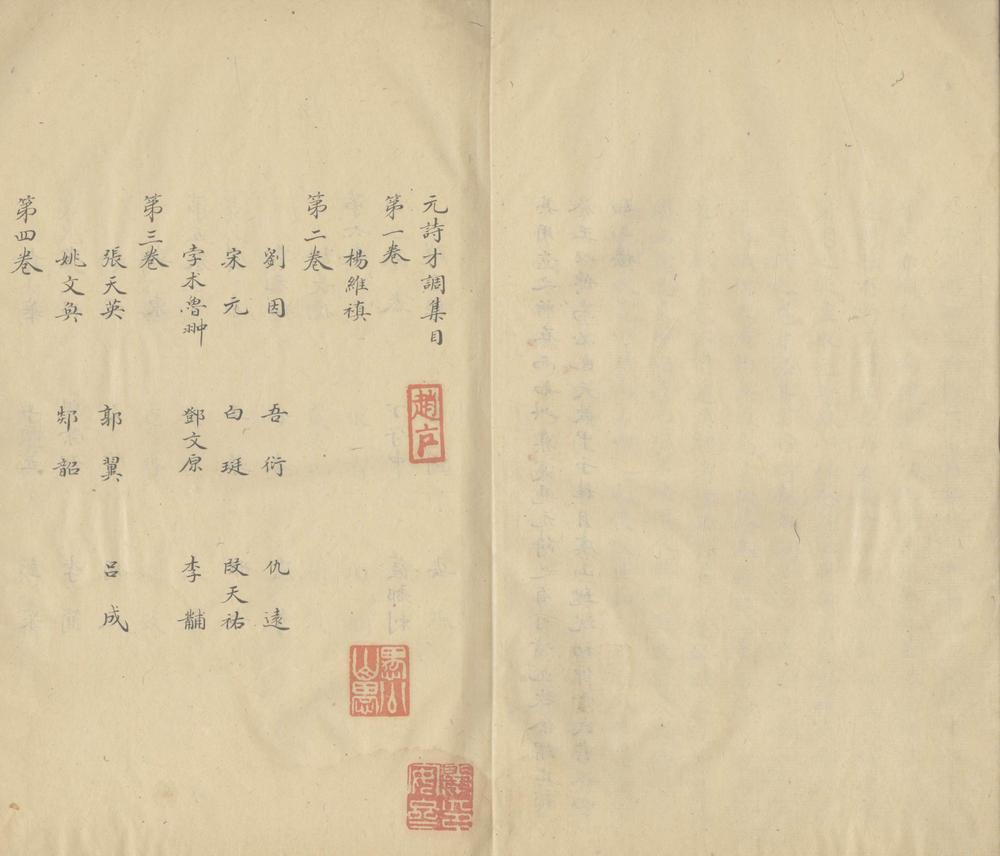 元詩才調集目
第一卷
楊維禎
第二卷
劉因 吾衍 仇遠
宋元 白珽 段天祐
孛术魯翀 鄧文原 李黼
第三卷
張天英 郭翼 呂成
姚文奐 郯韶
第四卷